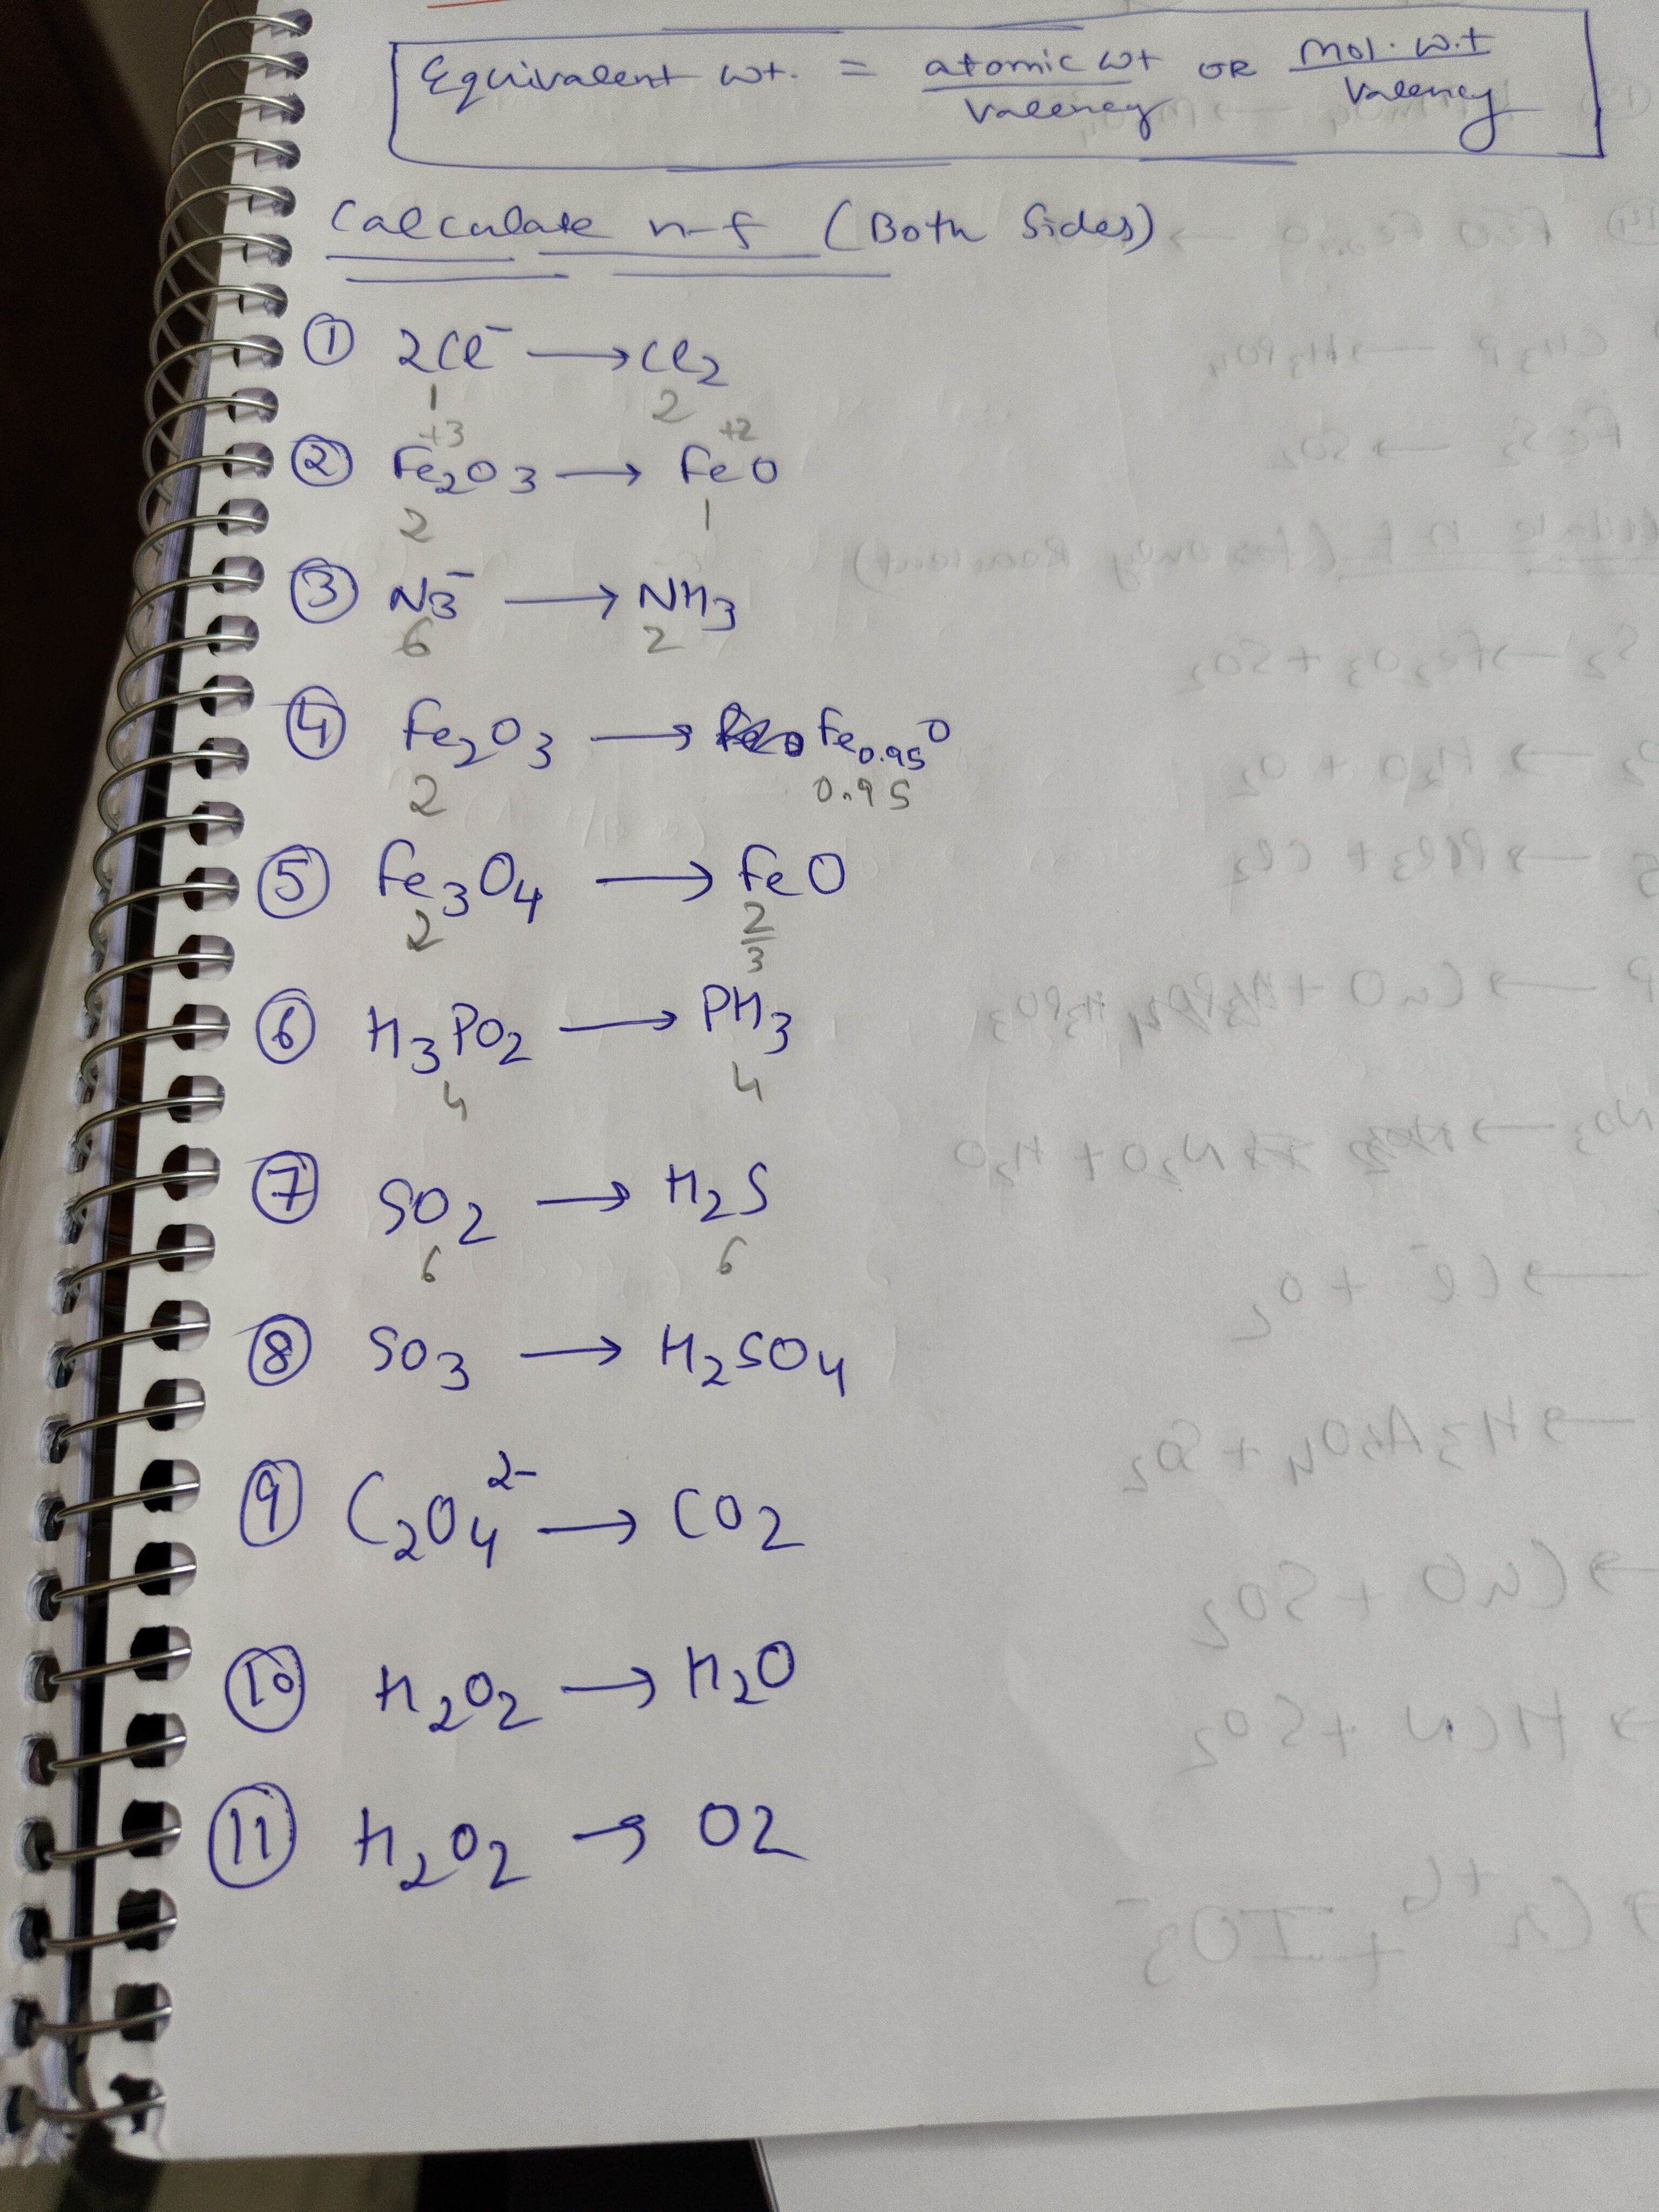 Equivalent wt. = atomic wt / Valency OR Mol. w.t / Valency
Calculate n-f (Both Sides)
① 2Cl⁻ → Cl₂
1 2
+3 +2
② Fe₂O₃ → FeO
2 1
③ N₃⁻ → NH₃
6 2
④ Fe₂O₃ → Fe₀.₉₅O
2 0.95
⑤ Fe₃O₄ → FeO
2 2/3
⑥ H₃PO₂ → PH₃
4 4
⑦ SO₂ → H₂S
6 6
⑧ SO₃ → H₂SO₄
⑨ C₂O₄²⁻ → CO₂
⑩ H₂O₂ → H₂O
⑪ H₂O₂ → O2